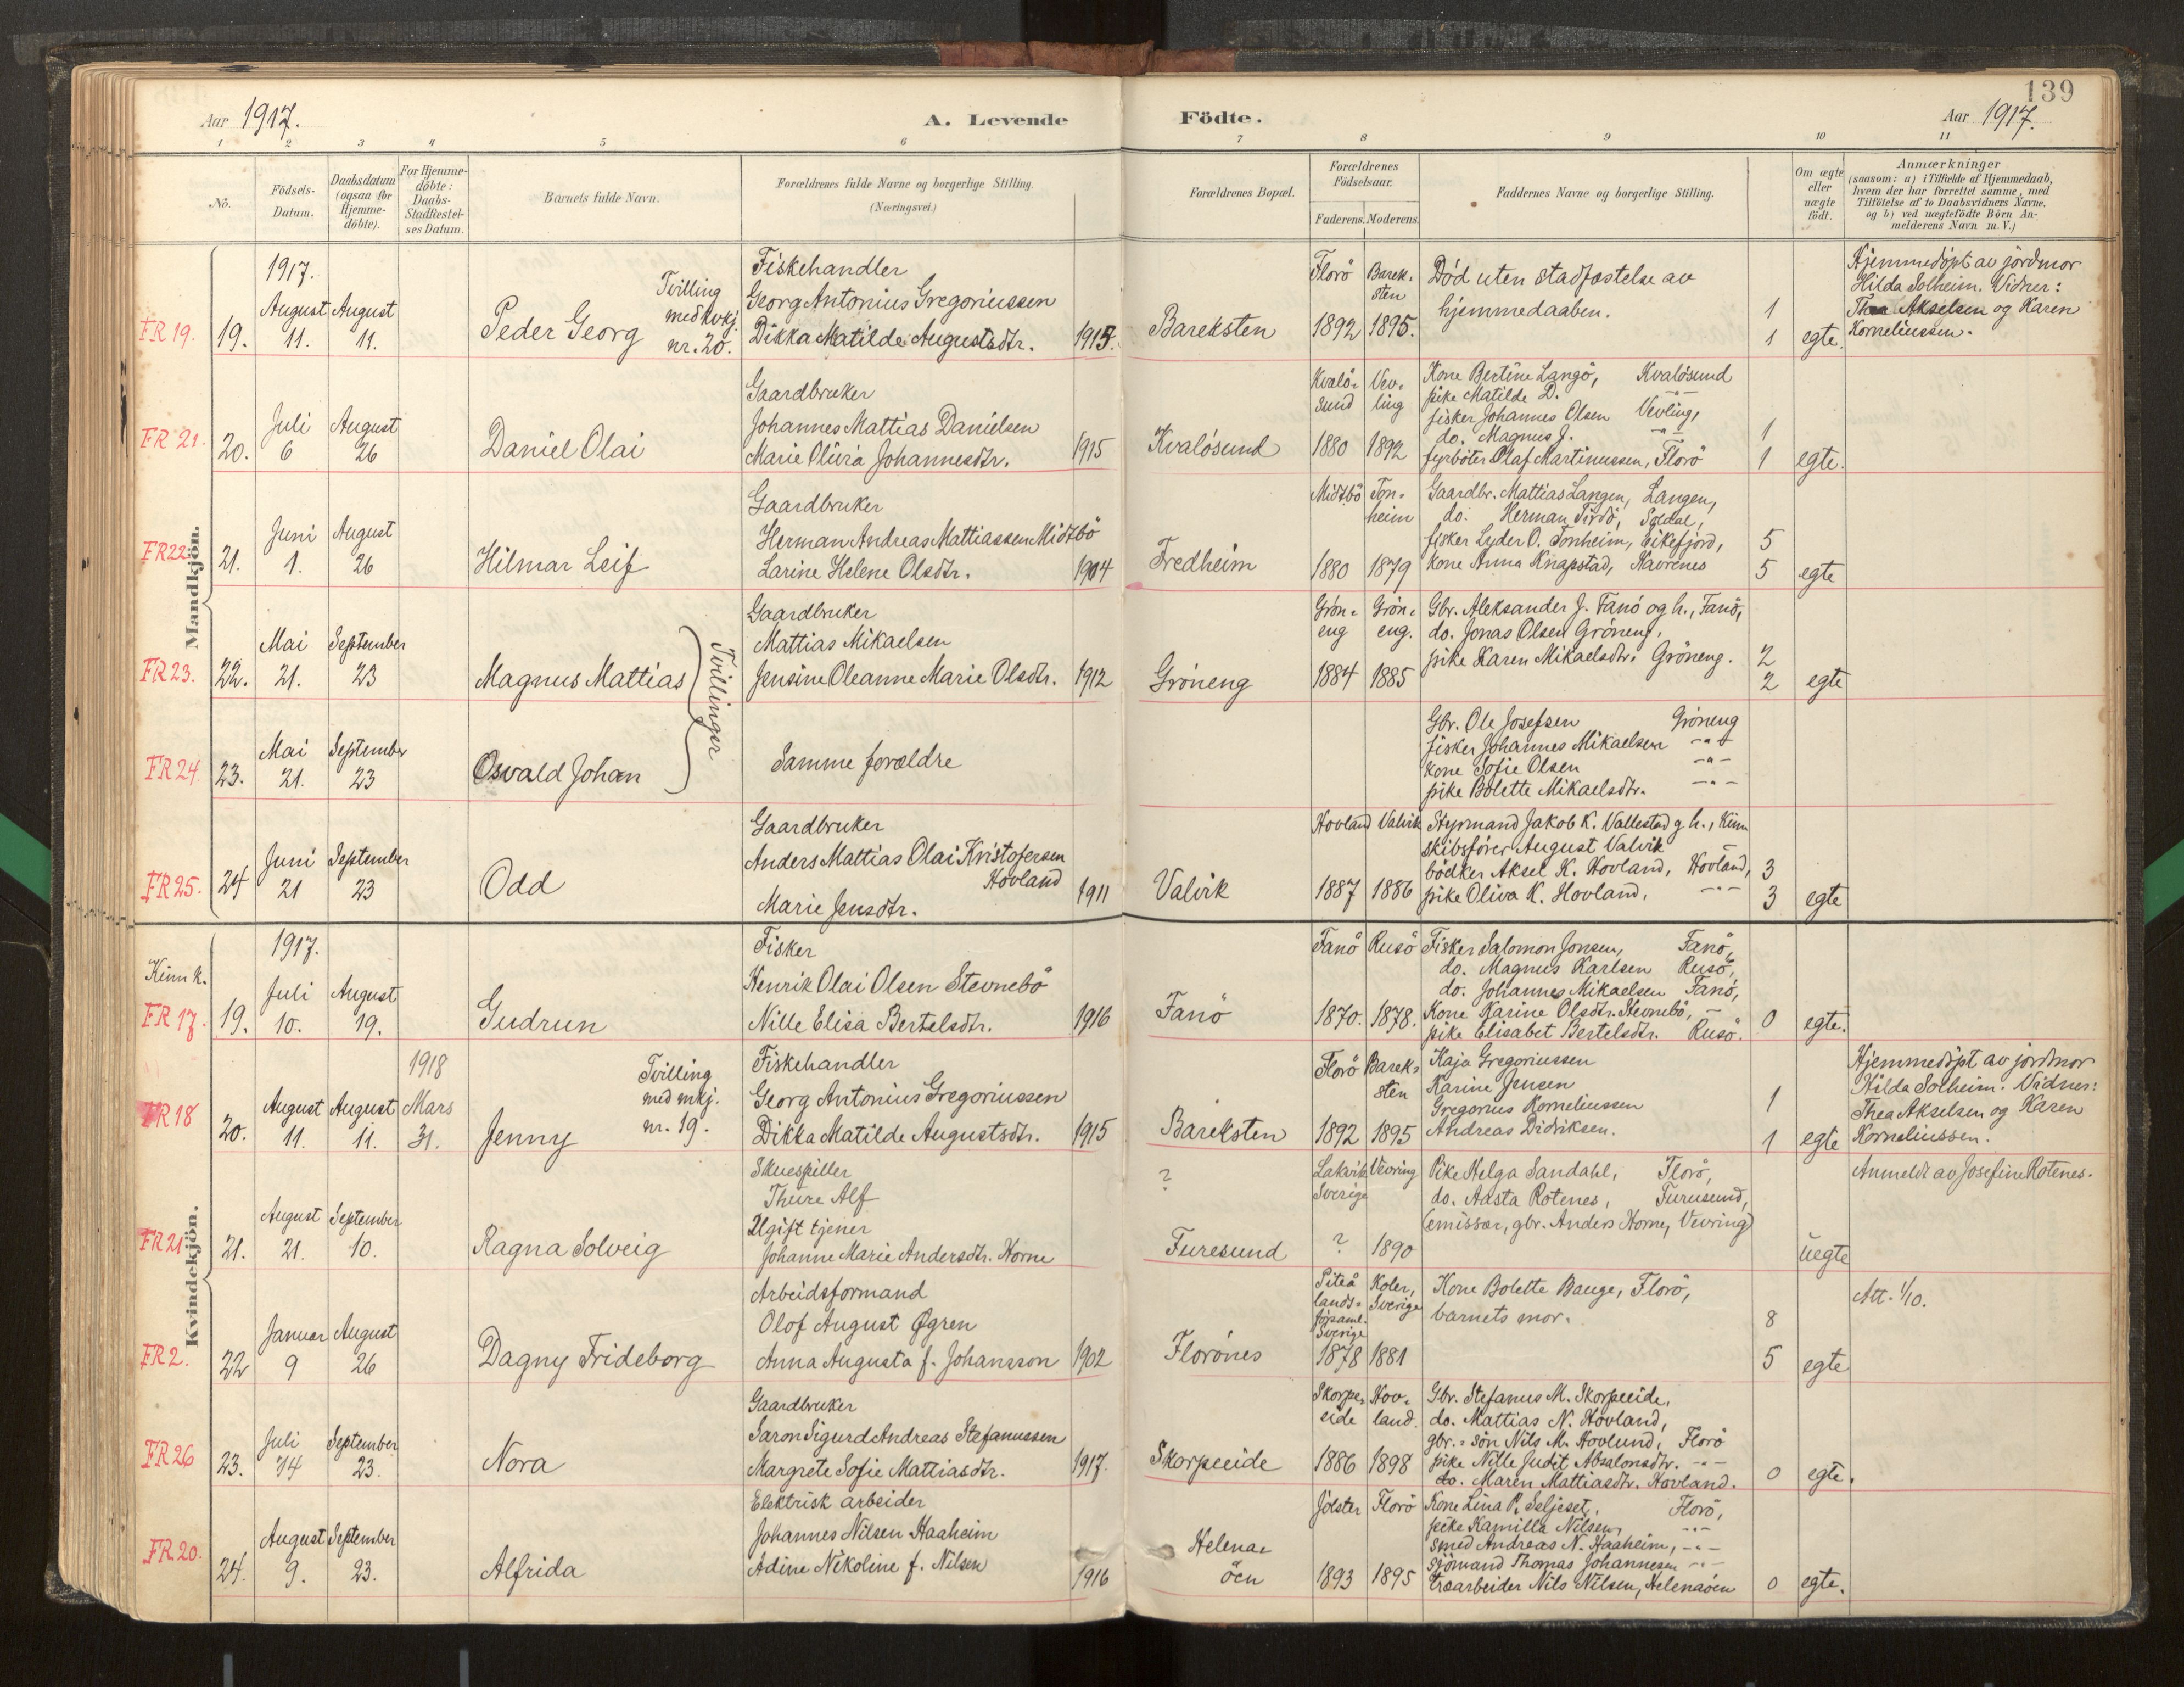 139
Aar 1917.
A. Levende Födte.
Aar 1917.
1 2 3 4 5 6 7 8 9 10 11
No.
Födsels-Datum.
Daabsdatum (ogsaa for Hjemme-döbte).
For Hjemme-döbte: Daabs-Stadfæstel-ses Datum.
Barnets fulde Navn.
Forældrenes fulde Navne og borgerlige Stilling.
(Næringsvei.)
Forældrenes Bopæl.
Forældrenes Födselsaar.
Faderens. Moderens.
Faddernes Navne og borgerlige Stilling.
Om ægte eller uægte födt.
Anmærkninger
(saasom: a) i Tilfælde af Hjemmedaab,
hvem der har forrettet samme, med
Tilföielse af to Daabsvidners Navne,
og b) ved uægtefödte Börn An-
melderens Navn m. V.)
Mandkjön.
1917.
FR 19. 19. August 11. August 11.
Peder Georg
Tvilling
med kvkj.
nr. 20.
Fiskehandler
Georg Antonius Gregoriussen
Dikka Matilde Augustsdtr. 1915.
Bareksten
Florö 1892
Barek-
sten 1895.
Död uten stadfæstelse av
hjemmedaaben.
1
1 egte.
Hjemmedöpt av jordmor
Hilda Solheim. Vidner:
Thea Akselsen og Karen
Korneliussen.
FR 21. 20. Juli 6 August 26
Daniel Olai
Gaardbruker
Johannes Mattias Danielsen
Marie Olivia Johannesdtr. 1915
Kvalösund
Kvalö-
sund 1880
Vev-
ling 1892
Kone Bertine Langö, Kvalösund
pike Matilde D. -"-
fisker Johannes Olsen Vevling,
do. Magnus J. -"-
fyrböter Olaf Martinussen, Florö
1
1 egte.
FR 22 21. Juni 1. August 26
Hilmar Leif
Gaardbruker
Herman Andreas Mattiassen Midtbö
Larine Helene Olsdtr. 1904
Fredheim
Midtbö 1880
Ton-
heim 1879
Gaardbr. Mattias Langen, Langen,
do. Herman Tirdö, Soldal,
fisker Lyder O. Tonheim, Eikefjord,
kone Anna Knapstad, Navrenes
5
5 egte
FR 23. 22. Mai 21. September 23
Magnus Mattias
Tvillinger
Gaardbruker
Mattias Mikaelsen
Jensine Oleanne Marie Olsdtr. 1912
Gröneng
Grön-
eng 1884
Grön-
eng. 1885
Gbr. Aleksander J. Fanö og h., Fanö,
do. Jonas Olsen Gröneng,
pike Karen Mikaelsdtr. Gröneng.
2
2 egte
FR 24. 23. Mai 21. September 23
Osvald Johan
Samme forældre
Gbr. Ole Josefsen Gröneng
fisker Johannes Mikaelsen -"-
Kone Sofie Olsen -"-
pike Bolette Mikaelsdtr. -"-
FR 25. 24 Juni 21 September 23
Odd
Gaardbruker
Anders Mattias Olai Kristofersen
Hovland
Marie Jensdtr. 1911
Valvik
Hovland 1887
Valvik 1886
Styrmand Jakob K. Vallestad g h., Kinn
skibsförer August Valvik -
bödker Aksel K. Hovland, Hovland,
pike Oliva K. Hovland, -"-
3
3 egte
Kvindekjön.
1917.
Kinn k.
FR 17. 19. Juli 10. August 19.
Gudrun
Fisker
Henrik Olai Olsen Stevnebö
Nille Elisa Bertelsdtr. 1916
Fanö
Fanö 1870.
Rusö 1878.
Fisker Salomon Jonsen, Fanö,
do. Magnus Karlsen Rusö,
do. Johannes Mikaelsen Fanö,
Kone Karine Olsdtr. Stevnebö, -
pike Elisabet Bertelsdtr. Rusö.
0 egte.
FR 18 20. August 11. August 11. 1918 Mars 31.
Jenny
Tvilling
med mkj.
nr. 19.
Fiskehandler
Georg Antonius Gregoriussen
Dikka Matilde Augustsdtr. 1915
Bareksten
Florö 1892
Barek-
sten 1895
Kaja Gregoriussen
Karine Jensen
Gregorius Korneliussen
Andreas Didriksen.
1
1 egte
Hjemmedöpt av jordmor
Hilda Solheim. Vidner:
Thea Akselsen og Karen
Korneliussen.
FR 21 21. August 21. September 10.
Ragna Solveig
Skuespiller
Thure Alf
Ugift tjener
Johanne Marie Andersdtr. Horne
?
Furesund
Lakvik
Sverige ?
Vevring 1890
Pike Helga Sandahl, Florö,
do. Aasta Rotenes, Furusund,
(emissær, gbr. Anders Horne, Vevring)
uegte
Anmeldt av Josefine Rotenes.
FR 2. 22 Januar 9 August 26
Dagny Frideborg
Arbeidsformand
Olof August Øgren
Anna Augusta f. Johansson 1902
Florönes
Piteå
lands-
församl.
Sverige
1878
Koler,
Sverige
1881
Kone Bolette Bauge, Florö,
barnets mor.
8
5 egte
Att. 1/10.
FR 26 23. Juli 14 September 23.
Nora
Gaardbruker
Saron Sigurd Andreas Stefanussen
Margrete Sofie Mattiasdtr. 1917.
Skorpeeide
Skorpe-
eide 1886
Hov-
land. 1898
Gbr. Stefanus M. Skorpeeide,
do. Mattias N. Hovland,
gbr.-sön Nils M. Hovlund, Florö
pike Nille Judit Absalonsdtr. -"-
do. Maren Mattiasdtr. Hovland.
0 egte.
FR 20. 24. August 9. September 23.
Alfrida
Elektrisk arbeider
Johannes Nilsen Haaheim
Adine Nikoline f. Nilsen 1916
Helena-
öen
Jölster 1893
Florö 1895
Kone Lina P. Seljeset, Florö,
pike Kamilla Nilsen, -"-
smed Andreas N. Haaheim, -"-
sjömand Thomas Johannesen -"-
træarbeider Nils Nilsen, Helenaöen
0 egte.